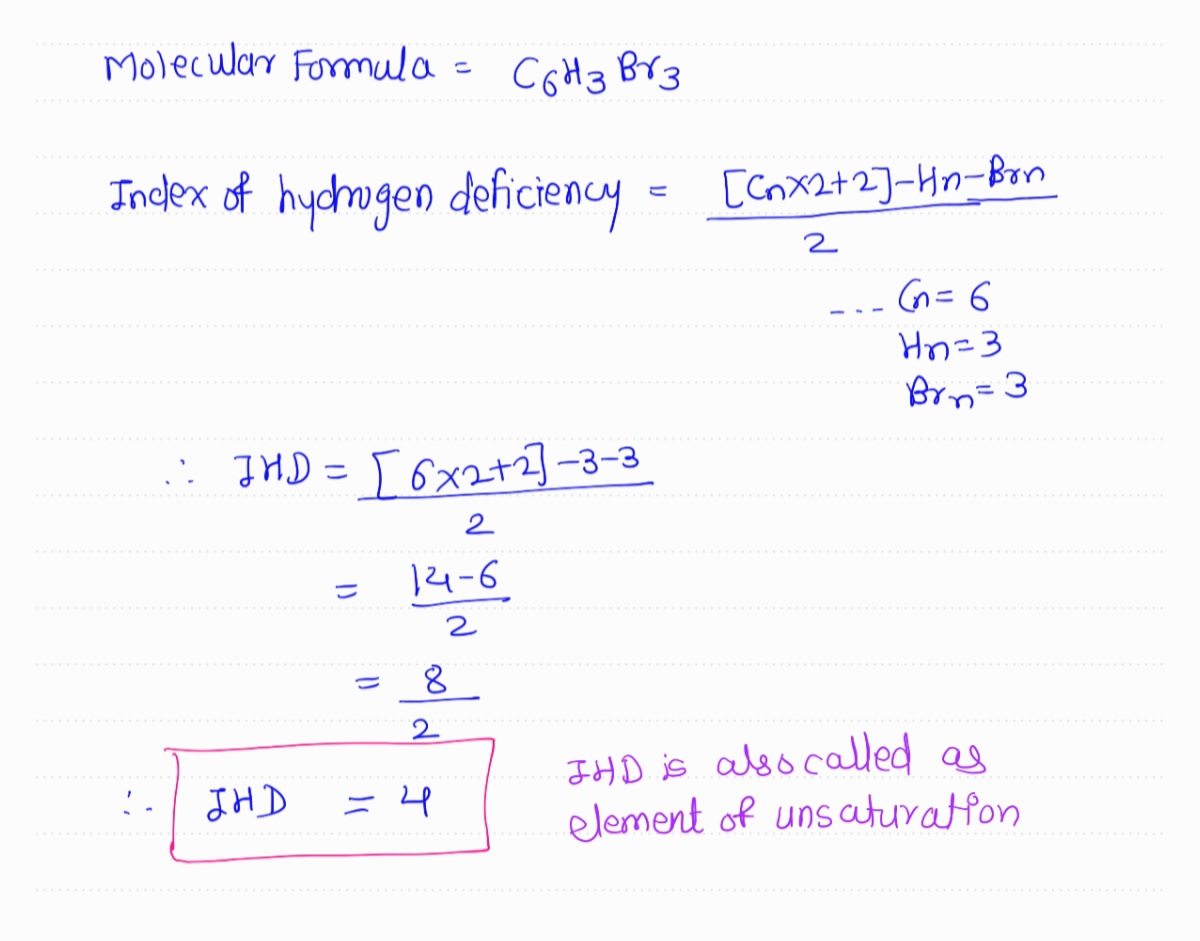 Molecular Formula = C6H3Br3
Index of hydrogen deficiency = [Cn×2+2]-Hn-Brn
2
---- Cn = 6
Hn = 3
Brn = 3
∴ IHD = [6×2+2]-3-3
2
= 14-6
2
= 8
2
∴ IHD = 4
IHD is also called as
element of unsaturation